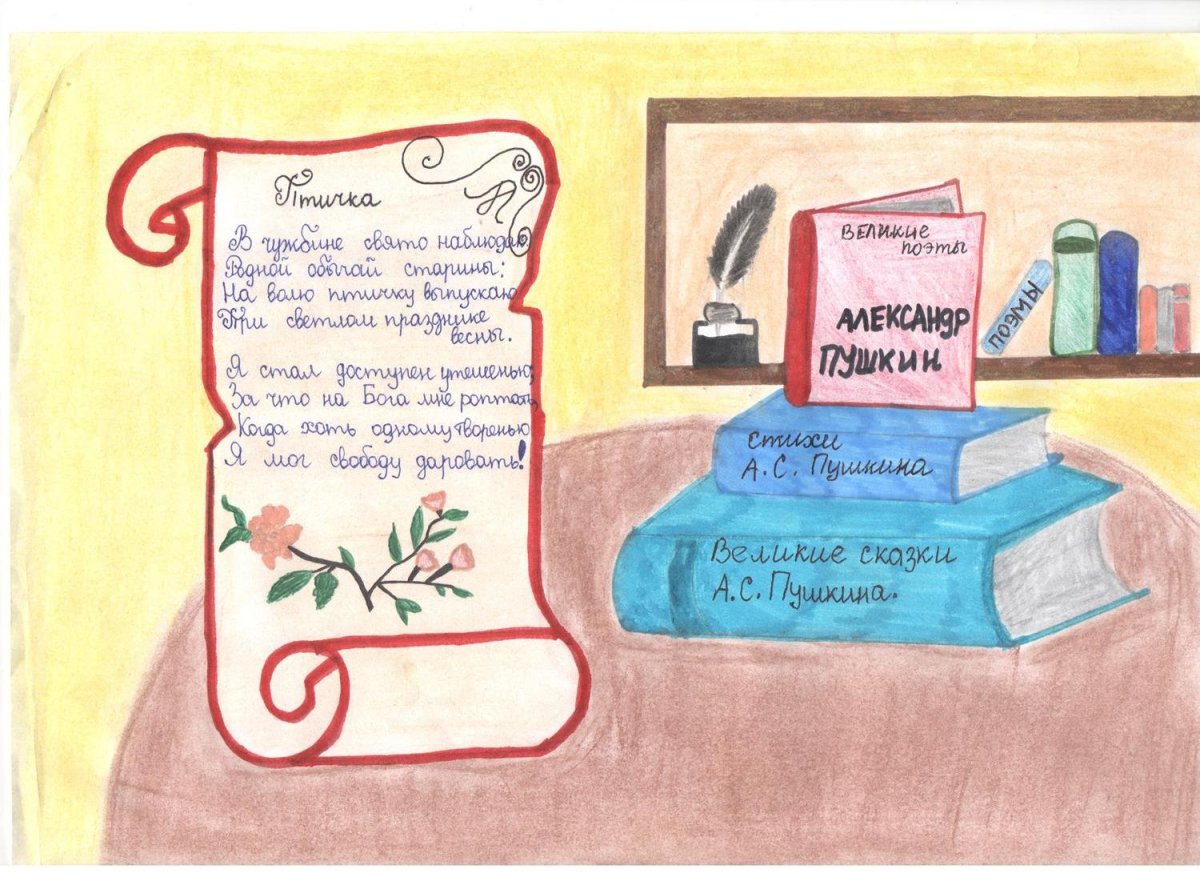 Птичка
В чужбине свято наблюдаю
Родной обычай старины:
На волю птичку выпускаю
При светлом празднике
весны.
Я стал доступен утешенью;
За что на Бога мне роптать,
Когда хоть одному творенью
Я мог свободу даровать!
ВЕЛИКИЕ
ПОЭТЫ
АЛЕКСАНДР
ПУШКИН
ПОЭМЫ
СТИХИ
А.С. Пушкина
Великие сказки
А.С. Пушкина.